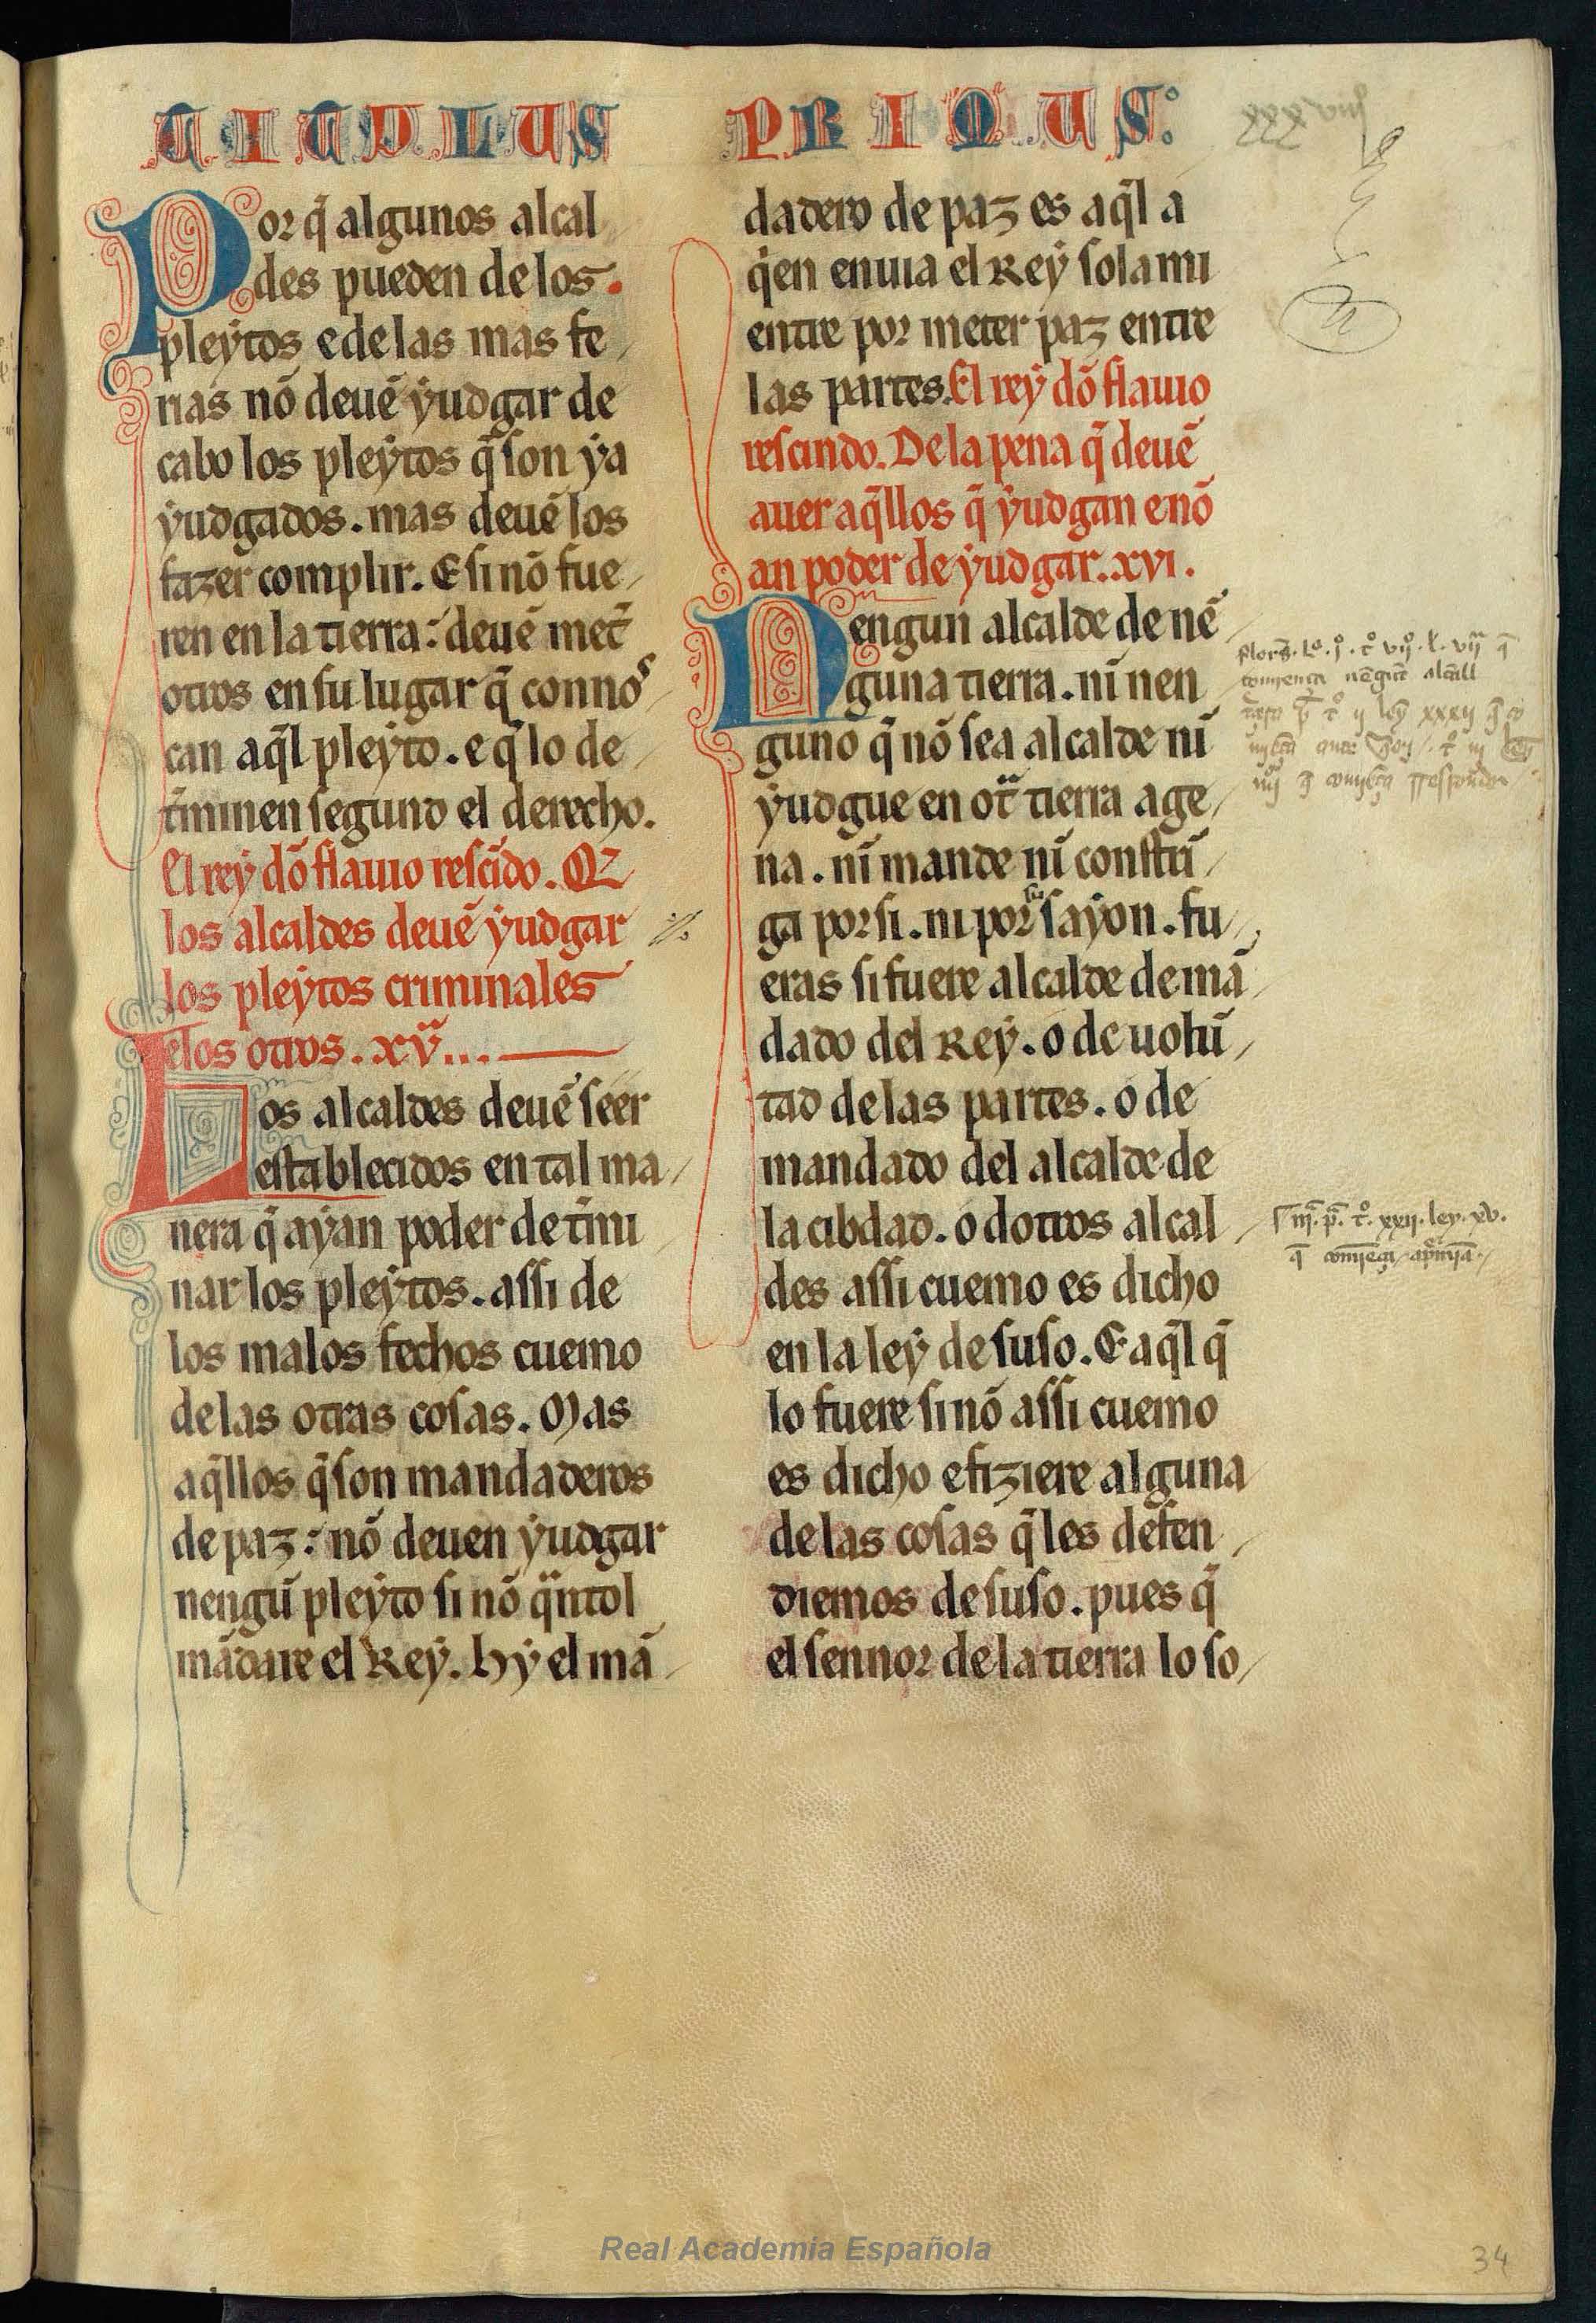 TITULUS PRIMUS
xxxviij
Por q̃ algunos alcal
des pueden de los
pleẏtos e de las mas fe
rias nõ deuẽ ẏudgar de
cabo los pleẏtos q̃ son ẏa
ẏudgados. mas deuẽ los
fazer complir. E si nõ fue
ren en la tierra: deuẽ met̃
otros en su lugar q̃ connos
can aq̃l pleẏto. e q̃ lo de
t̃minen segund el derecho.
El reẏ dõ flauio rescĩdo. Q̃
los alcaldes deuẽ ẏudgar
los pleẏtos criminales
e los otros. xv̈...
Los alcaldes deuẽ seer
establecidos en tal ma
nera q̃ aẏan poder de t̃mi
nar los pleẏtos. assi de
los malos fechos cuemo
de las otras cosas. Mas
aq̃llos q̃ son mandaderos
de paz: nõ deuen ẏudgar
nengũ pleẏto si nõ q̃ntol
mãdare el Reẏ. Hẏ el mã
dadero de paz es aq̃l a
q̃en enuia el Reẏ sola mi
entre por meter paz entre
las partes. El reẏ dõ flauio
rescindo. De la pena q̃ deuẽ
auer aq̃llos q̃ ẏudgan e nõ
an poder de ẏudgar. xvi.
Nengun alcalde de nẽ
guna tierra. nĩ nen
guno q̃ nõ sea alcalde nĩ
ẏudgue en ot̃ tierra age
na. nĩ mande nĩ constrĩ
ga por si. ni por su saẏon. fu
eras si fuere alcalde de mã
dado del Reẏ. o de uolũ
tad de las partes. o de
mandado del alcalde de
la cibdad. o dotros alcal
des assi cuemo es dicho
en la leẏ de suso. E aq̃l q̃
lo fuere si nõ assi cuemo
es dicho e fiziere alguna
de las cosas q̃ les defen
diemos de suso. pues q̃
el sennor de la tierra lo so
iij. p̃. t̊. xxij. ley. xv.
Real Academia Española
34